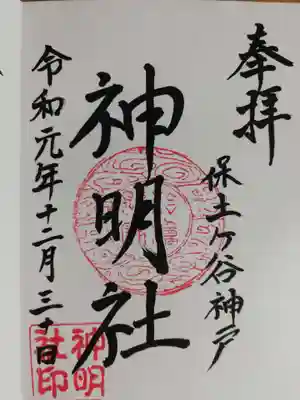 奉拝
保土ケ谷神戸
神明社
令和元年十二月三十日
神明
社印